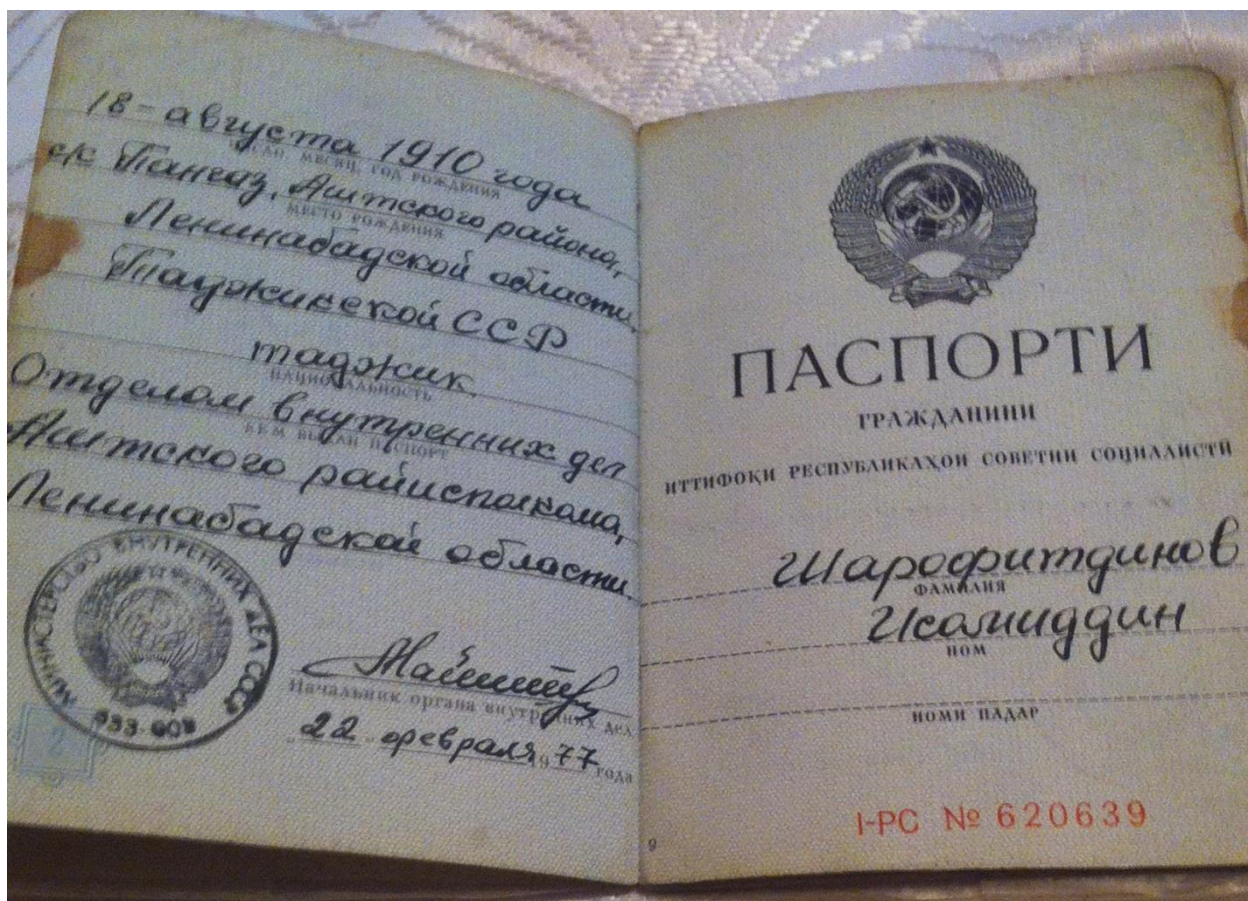 18 - августа 1910 года
ЧИСЛО, МЕСЯЦ, ГОД РОЖДЕНИЯ
с/с Пангаз, Аштского района,
МЕСТО РОЖДЕНИЯ
Ленинабадской области,
Таджикской ССР
таджик
НАЦИОНАЛЬНОСТЬ
Отделом внутренних дел
КЕМ ВЫДАН ПАСПОРТ
Аштского райисполкома,
Ленинабадской области.
МИНИСТЕРСТВО ВНУТРЕННИХ ДЕЛ СССР
Начальник органа внутренних дел
22 февраля 1977 года
2
ПАСПОРТИ
ГРАЖДАНИНИ
ИТТИФОҚИ РЕСПУБЛИКАҲОИ СОВЕТИИ СОЦИАЛИСТӢ
Шарофитдинов
ФАМИЛИЯ
Исомиддин
НОМ
НОМИ ПАДАР
I-РС № 620639
9